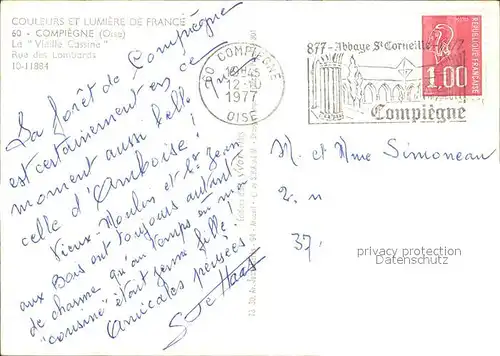 COULEURS ET LUMIÈRE DE FRANCE
60 - COMPIÈGNE (Oise)
La "Vieille Cassine"
Rue des Lombards
10-11884
La forêt de Compiègne
est certainement en ce
moment aussi belle
celle d'Amboise !
Vieux-Moulin et St Jean
aux Bois ont toujours autant
de charme qu'au temps où ma
"cousine" était jeune fille !
Amicales pensées.
60 COMPIEGNE
18H45
12-10
1977
OISE
877-Abbaye St Corneille-1977
Compiègne
REPUBLIQUE FRANÇAISE
1,00
M. et Mme Simoneau
37.
privacy protection
Datenschutz